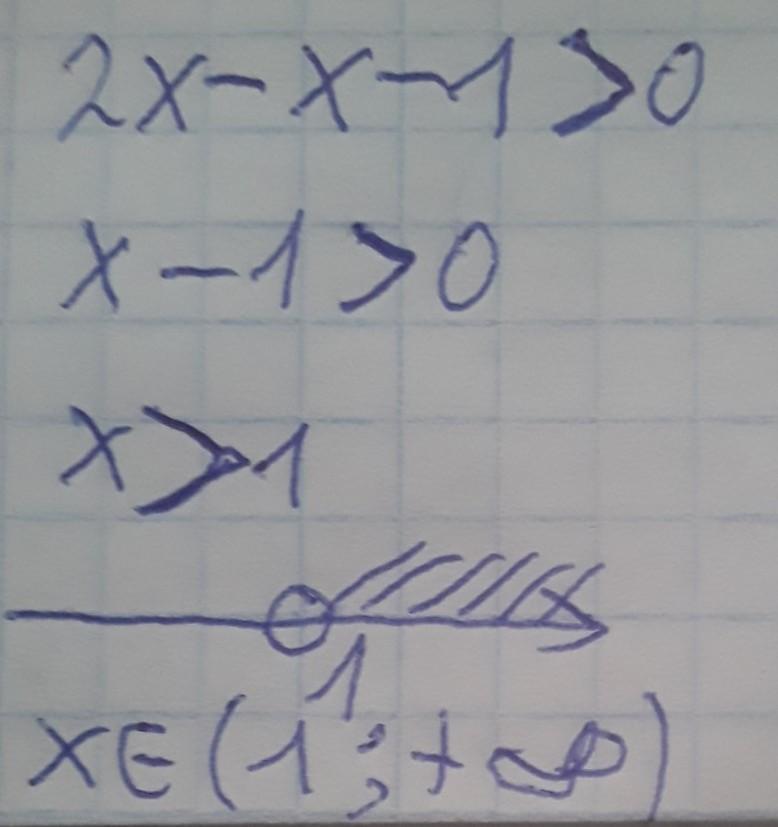 2x-x-1>0
x-1>0
x>1
1
x∈(1;+∞)